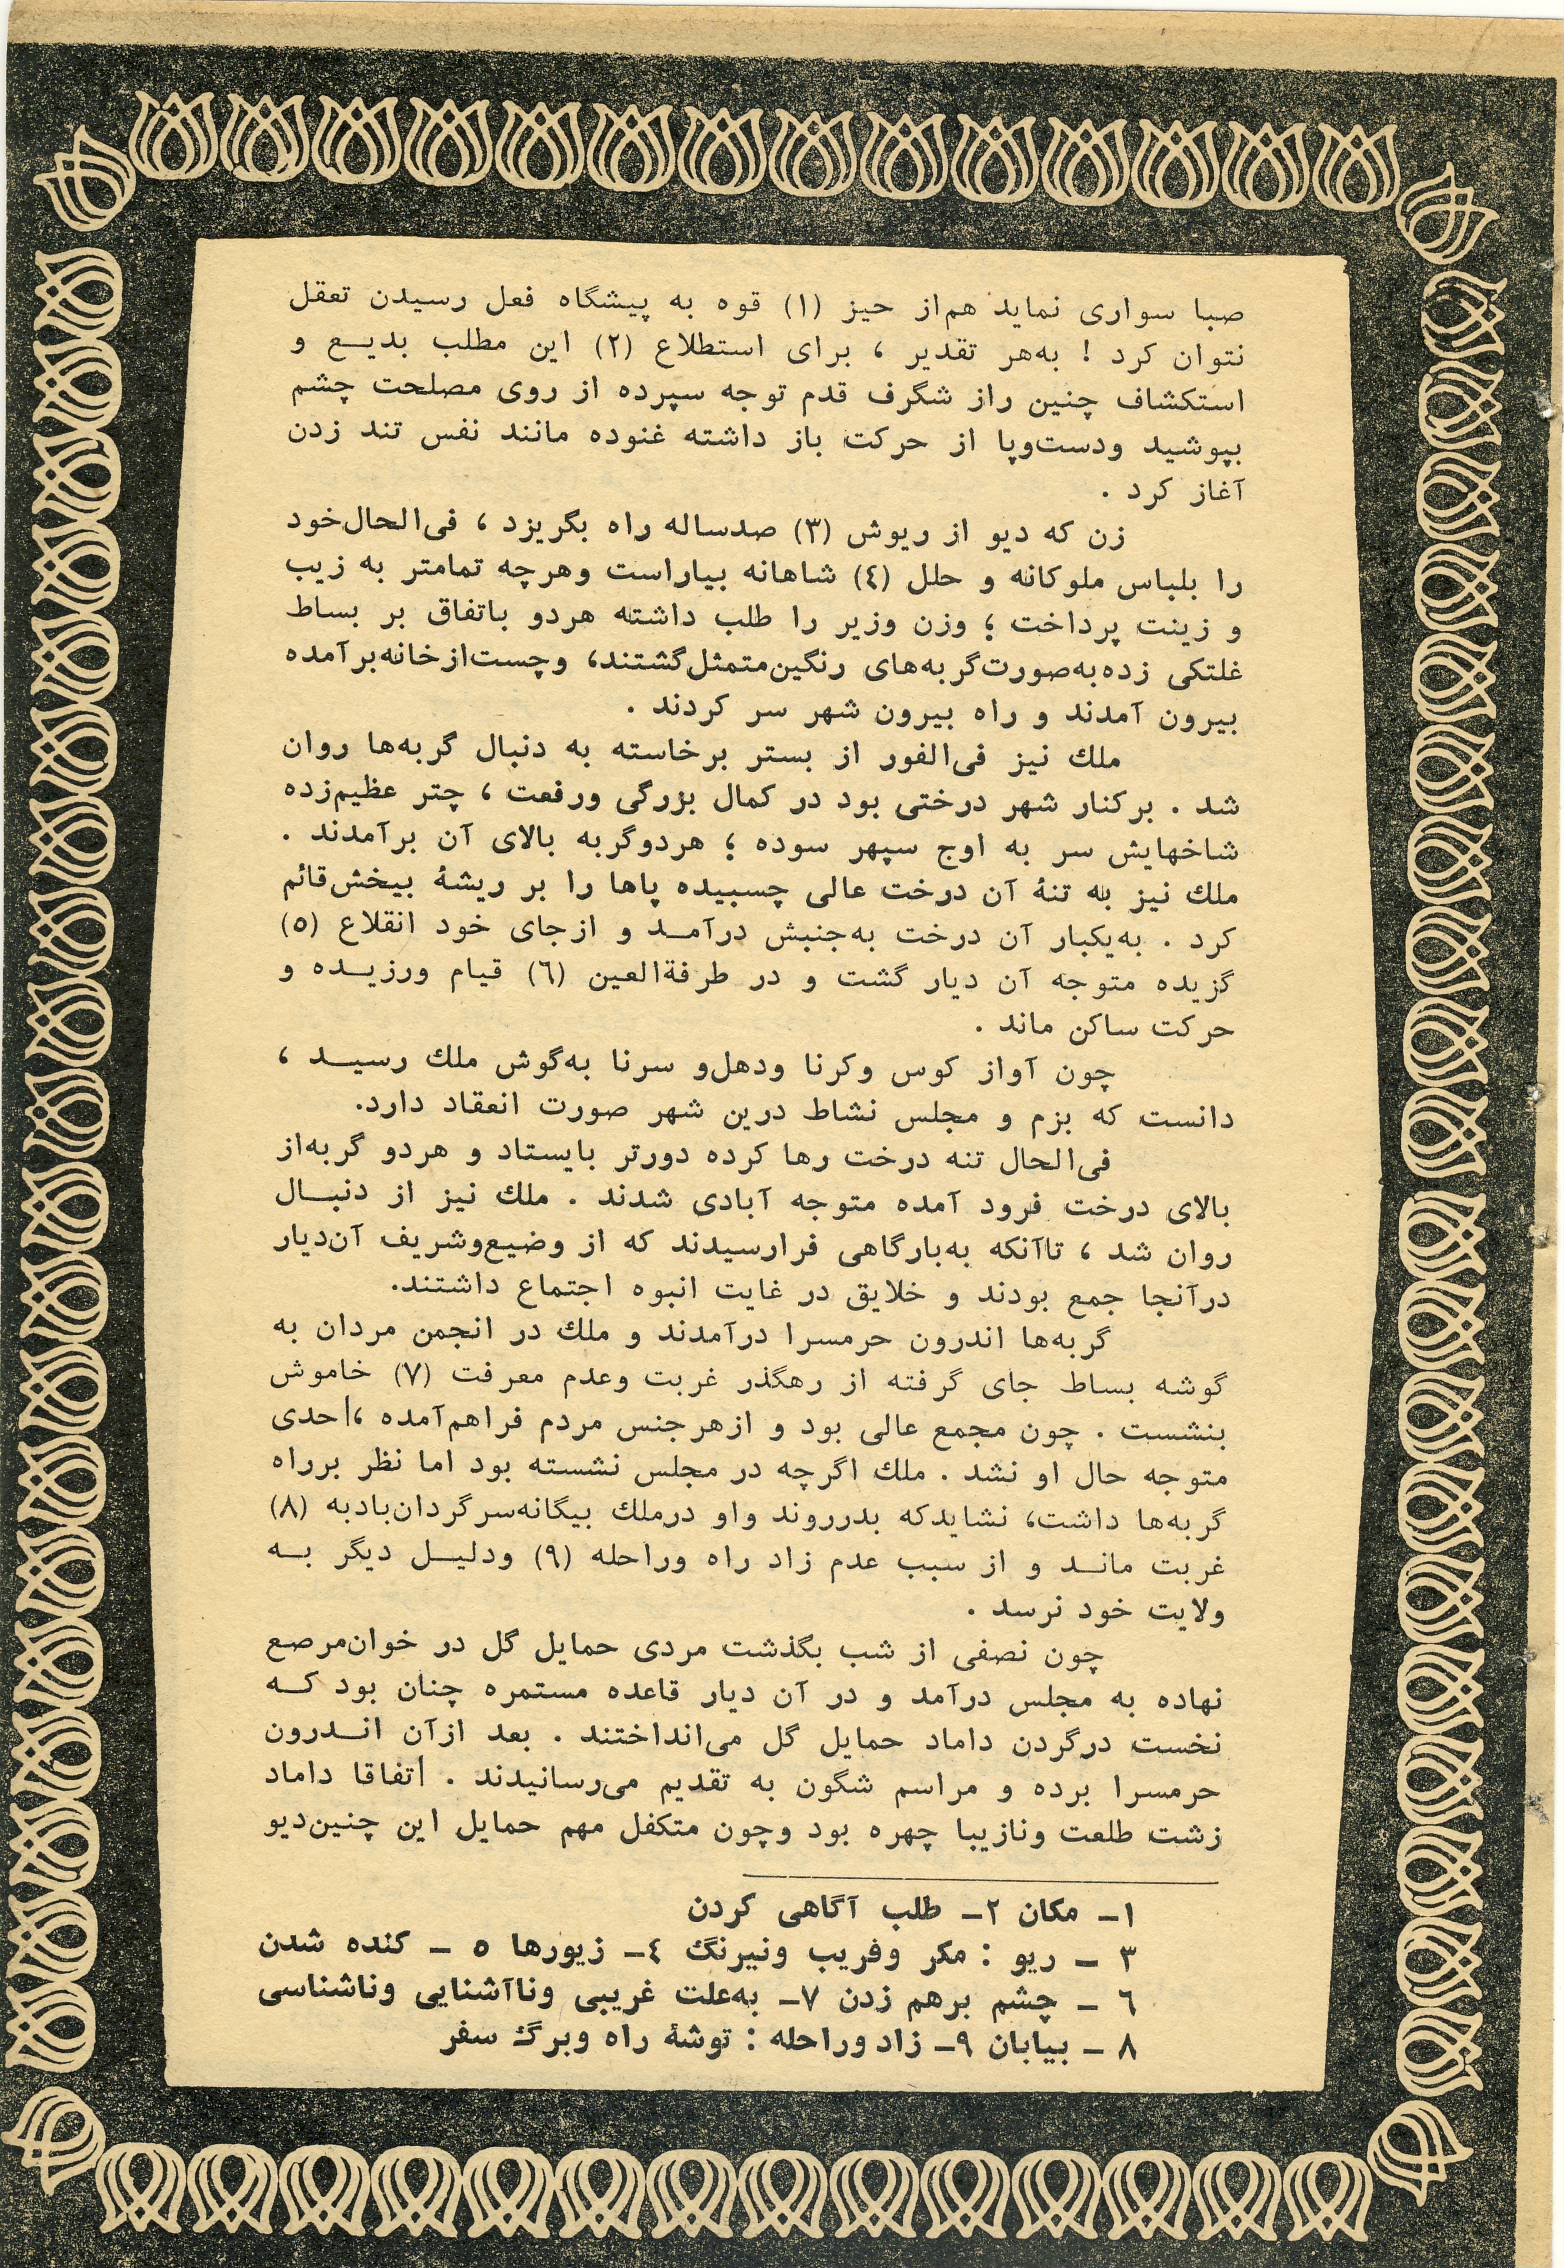 صبا سواری نماید هم‌از حیز (۱) قوه به پیشگاه فعل رسیدن تعقل
نتوان کرد ! به‌هر تقدیر ، برای استطلاع (۲) این مطلب بدیـع و
استکشاف چنین راز شگرف قدم توجه سپرده از روی مصلحت چشم
بپوشید ودست‌وپا از حرکت باز داشته غنوده مانند نفس تند زدن
آغاز کرد .
زن که دیو از ریوش (۳) صدساله راه بگریزد ، فی‌الحال‌خود
را بلباس ملوکانه و حلل (٤) شاهانه بیاراست وهرچه تمامتر به زیب
و زینت پرداخت ؛ وزن وزیر را طلب داشته هردو باتفاق بر بساط
غلتکی زده‌به‌صورت‌گربه‌های رنگین‌متمثل‌گشتند، وچست‌ازخانه‌برآمده
بیرون آمدند و راه بیرون شهر سر کردند .
ملك نیز فی‌الفور از بستر برخاسته به دنبال گربه‌ها روان
شد . برکنار شهر درختی بود در کمال بزرگی ورفعت ، چتر عظیم‌زده
شاخهایش سر به اوج سپهر سوده ؛ هردوگربه بالای آن برآمدند .
ملك نیز به تنهٔ آن درخت عالی چسبیده پاها را بر ریشهٔ بیخش‌قائم
کرد . به‌یکبار آن درخت به‌جنبش درآمـد و ازجای خود انقلاع (٥)
گزیده متوجه آن دیار گشت و در طرفةالعین (٦) قیام ورزیـده و
حرکت ساکن ماند .
چون آواز کوس وکرنا ودهل‌و سرنا به‌گوش ملك رسیـد ،
دانست که بزم و مجلس نشاط درین شهر صورت انعقاد دارد.
فی‌الحال تنه درخت رها کرده دورتر بایستاد و هردو گربه‌از
بالای درخت فرود آمده متوجه آبادی شدند . ملك نیز از دنبـال
روان شد ، تاآنکه به‌بارگاهی فرارسیدند که از وضیع‌وشریف آن‌دیار
درآنجا جمع بودند و خلایق در غایت انبوه اجتماع داشتند.
گربه‌ها اندرون حرمسرا درآمدند و ملك در انجمن مردان به
گوشه بساط جای گرفته از رهگذر غربت وعدم معرفت (۷) خاموش
بنشست . چون مجمع عالی بود و ازهرجنس مردم فراهم‌آمده ،احدی
متوجه حال او نشد . ملك اگرچه در مجلس نشسته بود اما نظر برراه
گربه‌ها داشت، نشایدکه بدرروند واو درملك بیگانه‌سرگردان‌بادبه (۸)
غربت مانـد و از سبب عدم زاد راه وراحله (۹) ودلیـل دیگر بـه
ولایت خود نرسد .
چون نصفی از شب بگذشت مردی حمایل گل در خوان‌مرصع
نهاده به مجلس درآمد و در آن دیار قاعده مستمره چنان بود کـه
نخست درگردن داماد حمایل گل می‌انداختند . بعد ازآن انـدرون
حرمسرا برده و مراسم شگون به تقدیم می‌رسانیدند . اتفاقا داماد
زشت طلعت ونازیبا چهره بود وچون متکفل مهم حمایل این چنین‌دیو
۱ـ مکان ۲ـ طلب آگاهی کردن
۳ ـ ریو : مکر وفریب ونیرنگ ٤ـ زیورها ٥ ـ کنده شدن
٦ ـ چشم برهم زدن ۷ـ به‌علت غریبی وناآشنایی وناشناسی
۸ ـ بیابان ۹ـ زاد وراحله : توشهٔ راه وبرگ سفر